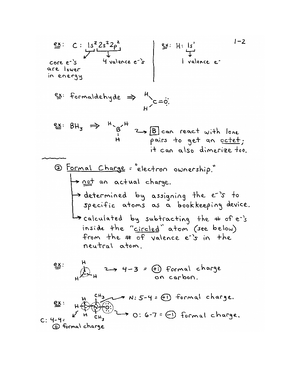 1-2
ex: C: 1s² 2s² 2p²
core e⁻'s are lower in energy
4 valence e⁻'s
ex: H: 1s¹
1 valence e⁻
ex: formaldehyde ⇒
H
C=O
H
ex: BH₃ ⇒
H H
B
H
B can react with lone
pairs to get an octet;
it can also dimerize too.
② Formal Charge: "electron ownership."
not an actual charge.
determined by assigning the e⁻'s to
specific atoms as a bookkeeping device.
calculated by subtracting the # of e⁻'s
inside the "circled" atom (see below)
from the # of valence e⁻'s in the
neutral atom.
ex:
H
C
H H
4-3 = +1 formal charge
on carbon.
ex:
CH₃
H
H
CH₃
N: 5-4 = +1 formal charge.
O: 6-7 = -1 formal charge.
C: 4-4=
0 formal charge